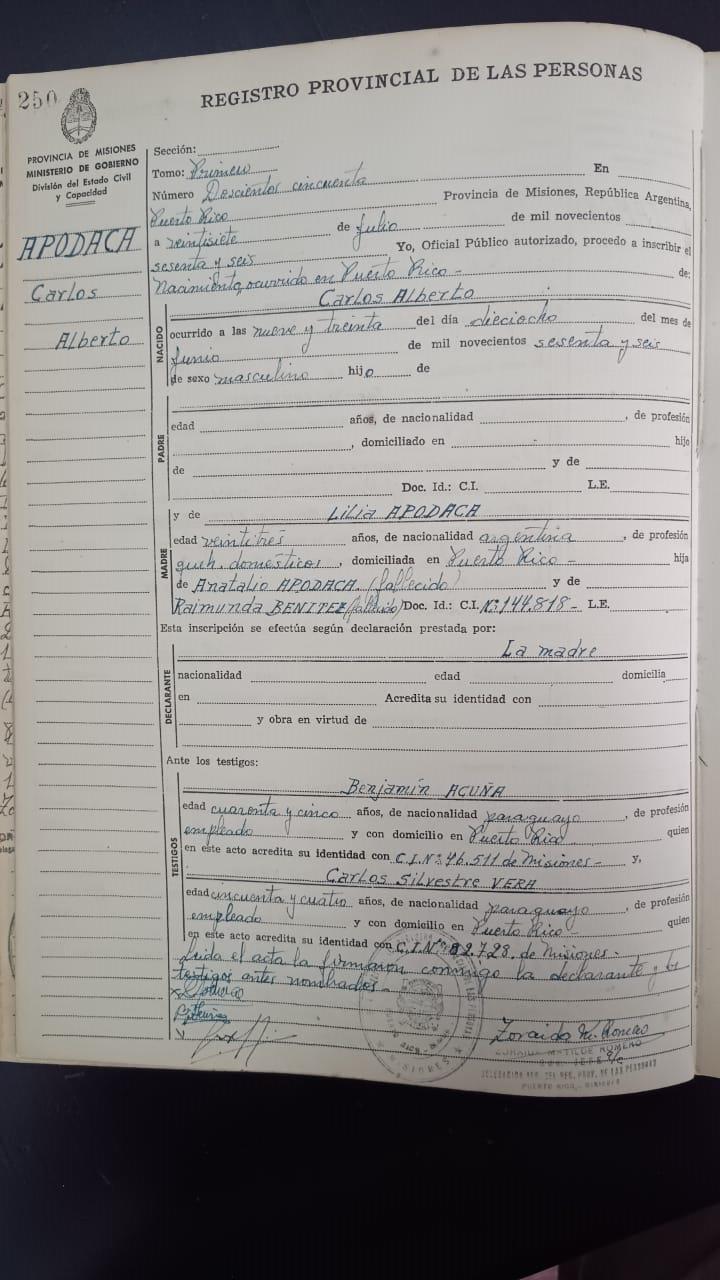 250
REGISTRO PROVINCIAL DE LAS PERSONAS
PROVINCIA DE MISIONES
MINISTERIO DE GOBIERNO
División del Estado Civil
y Capacidad
APODACA
Carlos
Alberto
Sección:
Tomo: Primero
Número Doscientos cincuenta En
Puerto Rico Provincia de Misiones, República Argentina,
a veintisiete de Julio de mil novecientos
sesenta y seis Yo, Oficial Público autorizado, procedo a inscribir el
Nacimiento, ocurrido en Puerto Rico - de:
NACIDO
Carlos Alberto
ocurrido a las nueve y treinta del día dieciocho del mes de
Junio de mil novecientos sesenta y seis
de sexo masculino hijo de
PADRE
edad años, de nacionalidad , de profesión
, domiciliado en hijo
de y de
Doc. Id.: C.I. L.E.
MADRE
y de Lilia APODACA
edad veintitrés años, de nacionalidad argentina , de profesión
queh. domésticos , domiciliada en Puerto Rico - hija
de Anatalio APODACA (fallecido) y de
Raimunda BENITEZ (fallecida) Doc. Id.: C.I. Nº: 144.818 - L.E.
Esta inscripción se efectúa según declaración prestada por:
DECLARANTE
La madre
nacionalidad edad domicilia
en Acredita su identidad con
y obra en virtud de
Ante los testigos:
TESTIGOS
Benjamín ACUÑA
edad cuarenta y cinco años, de nacionalidad paraguayo , de profesión
empleado y con domicilio en Puerto Rico quien
en este acto acredita su identidad con C.I.Nº: 46.511 de Misiones - y,
Carlos Silvestre VERA
edad cincuenta y cuatro años, de nacionalidad paraguayo , de profesión
empleado y con domicilio en Puerto Rico - quien
en este acto acredita su identidad con C.I.Nº: 82.728. de Misiones -
Leída el acta la firmaron conmigo la declarante y los
testigos antes nombrados. -
Zoraida M. Romero
ZORAIDA MATILDE ROMERO
JEFE
DELEGACION DEL REG. PROV. DE LAS PERSONAS
PUERTO RICO, - MISIONES
MISIONES